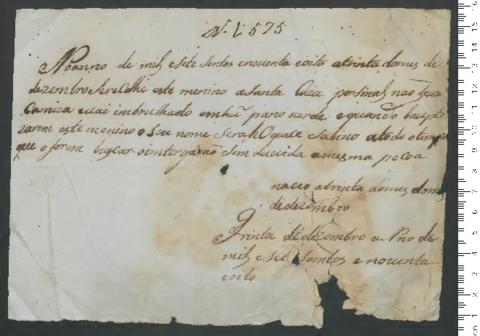 N. 1575
No anno de mil e sete sentos e noventa e oito a trinta do mes de
dezembro Se recolhe este menino a Santa Caza por sinal não leva
Camiza e vai imbrulhado em hũ pano verde e quando baupti
zarem este menino o seu nome Será a todo o tempo
que o forem buscar o intergarão Sem duvida a mesma pesoa
naceo a trinta do mes dom
de dezembro
Trinta de dezembro e Ano de
mil e set Sentos e noventa
e oito